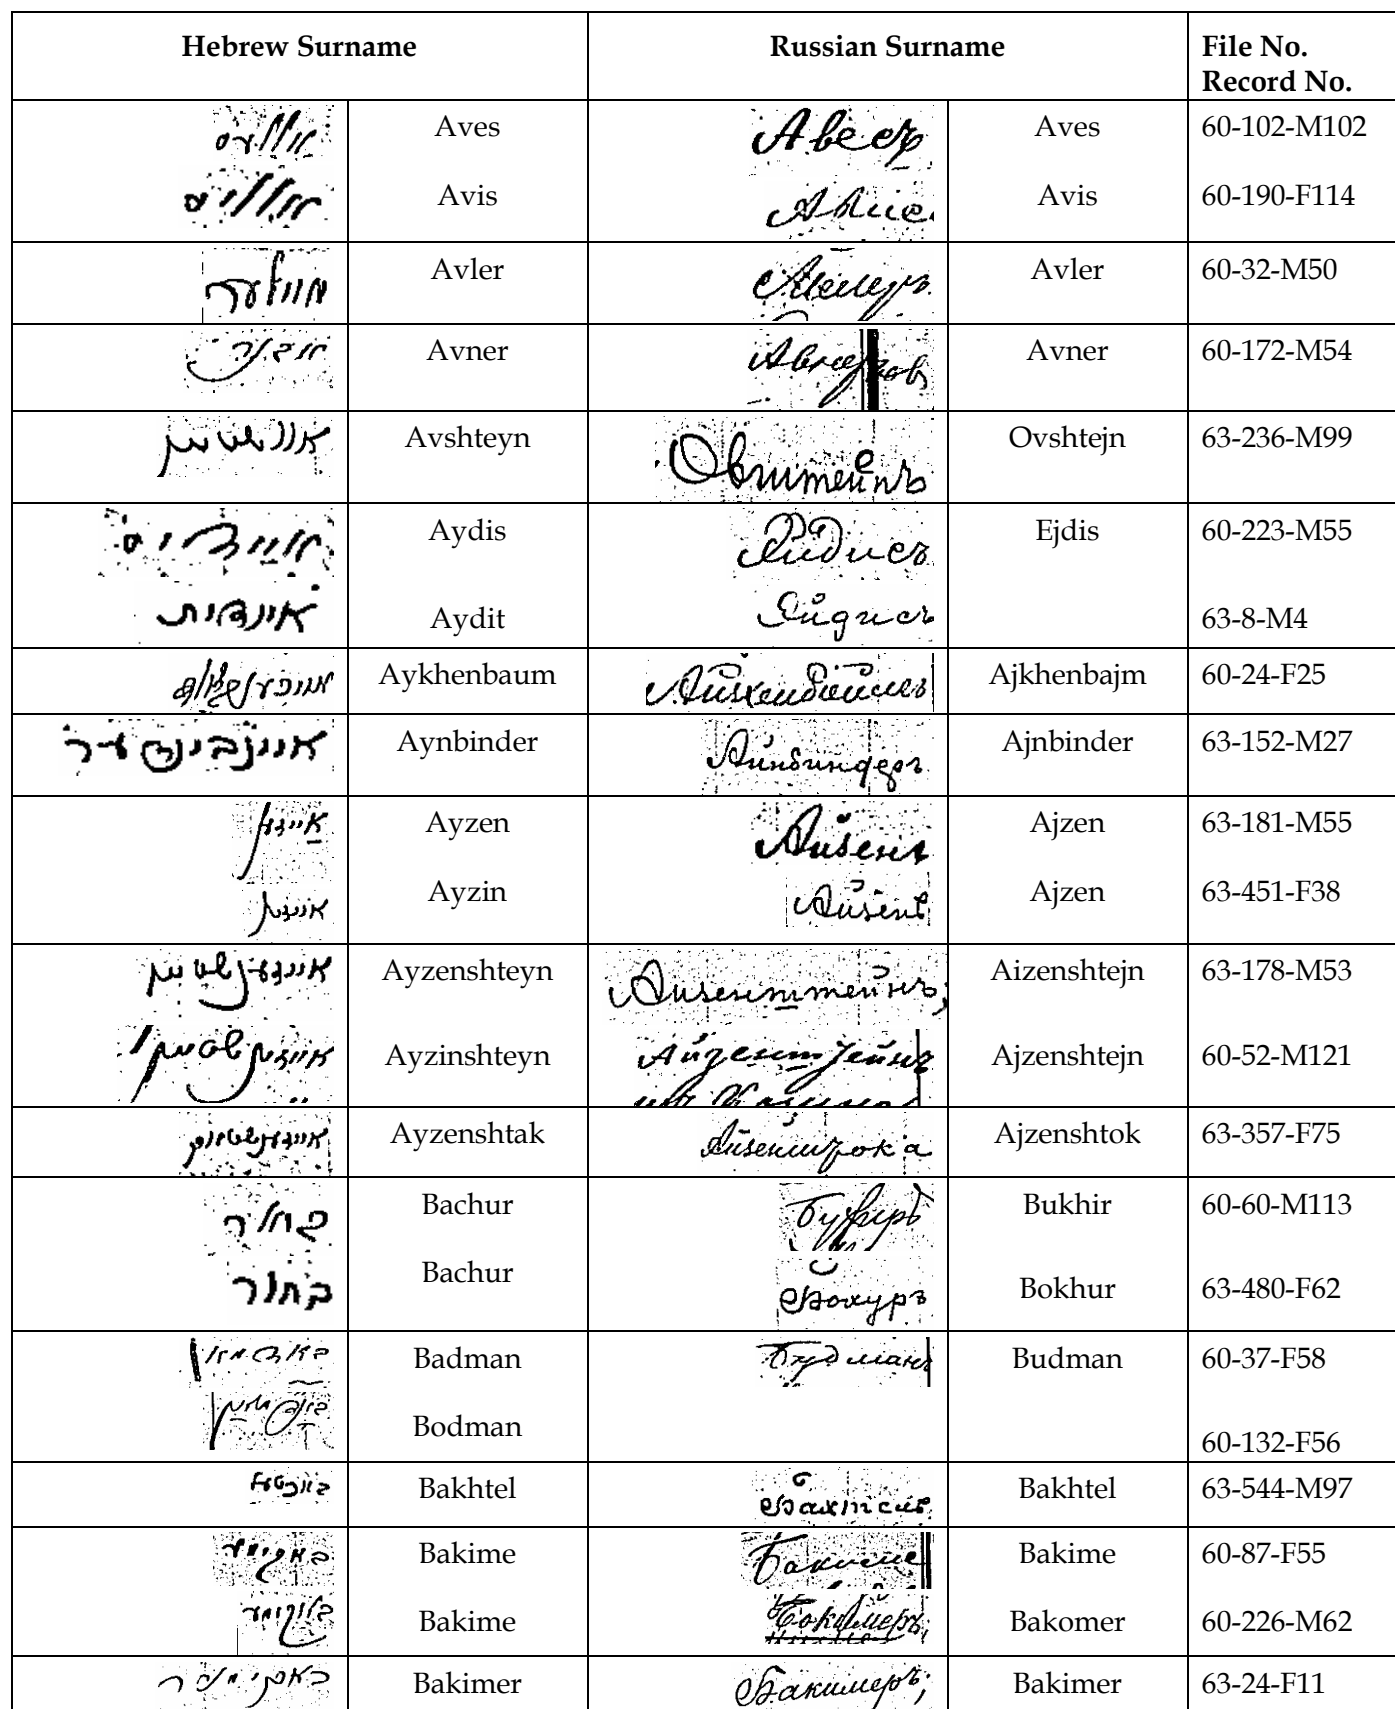 Hebrew Surname Russian Surname File No.
Record No.
Aves Авесъ Aves 60-102-M102
Avis Avis 60-190-F114
אוולער Avler Авлеръ Avler 60-32-M50
Avner Avner 60-172-M54
אוושטיין Avshteyn Овштейнъ Ovshtejn 63-236-M99
איידיס Aydis Ejdis 60-223-M55
Aydit Айдисъ 63-8-M4
Aykhenbaum Айхенбаймъ Ajkhenbajm 60-24-F25
איינבינדער Aynbinder Айнбиндеръ Ajnbinder 63-152-M27
אייזען Ayzen Айзенъ Ajzen 63-181-M55
אייזין Ayzin Айзенъ Ajzen 63-451-F38
אייזענשטיין Ayzenshteyn Аизенштейнъ; Aizenshtejn 63-178-M53
אייזינשטיין Ayzinshteyn Айзенштейнъ Ajzenshtejn 60-52-M121
Ayzenshtak Айзенштока Ajzenshtok 63-357-F75
בחור Bachur Бухиръ Bukhir 60-60-M113
בחור Bachur Бохуръ Bokhur 63-480-F62
באדמאן Badman Будманъ Budman 60-37-F58
Bodman 60-132-F56
Bakhtel Бахтель Bakhtel 63-544-M97
באקימע Bakime Бакиме Bakime 60-87-F55
Bakime Bakomer 60-226-M62
באקימער Bakimer Бакимеръ; Bakimer 63-24-F11